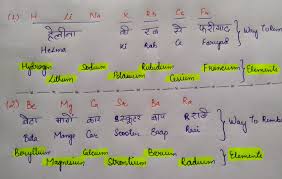 (1.) H Li Na K Rb Cs Fr
हेलीना की रब से फरीयाद } Way To Rem
Helina Ki Rab Ce Fariyad
Hydrogen Sodium Rubidium Francium } Elements
Lithium Potassium Cesium
(2.) Be Mg Ca Sr Ba Ra
बेटा मांगे कार स्कूटर बाप राजी } Way To Remb
Beta Mange Car Scooter Baap Razi
Beryllium Calcium Barium } Elements
Magnesium Strontium Radium